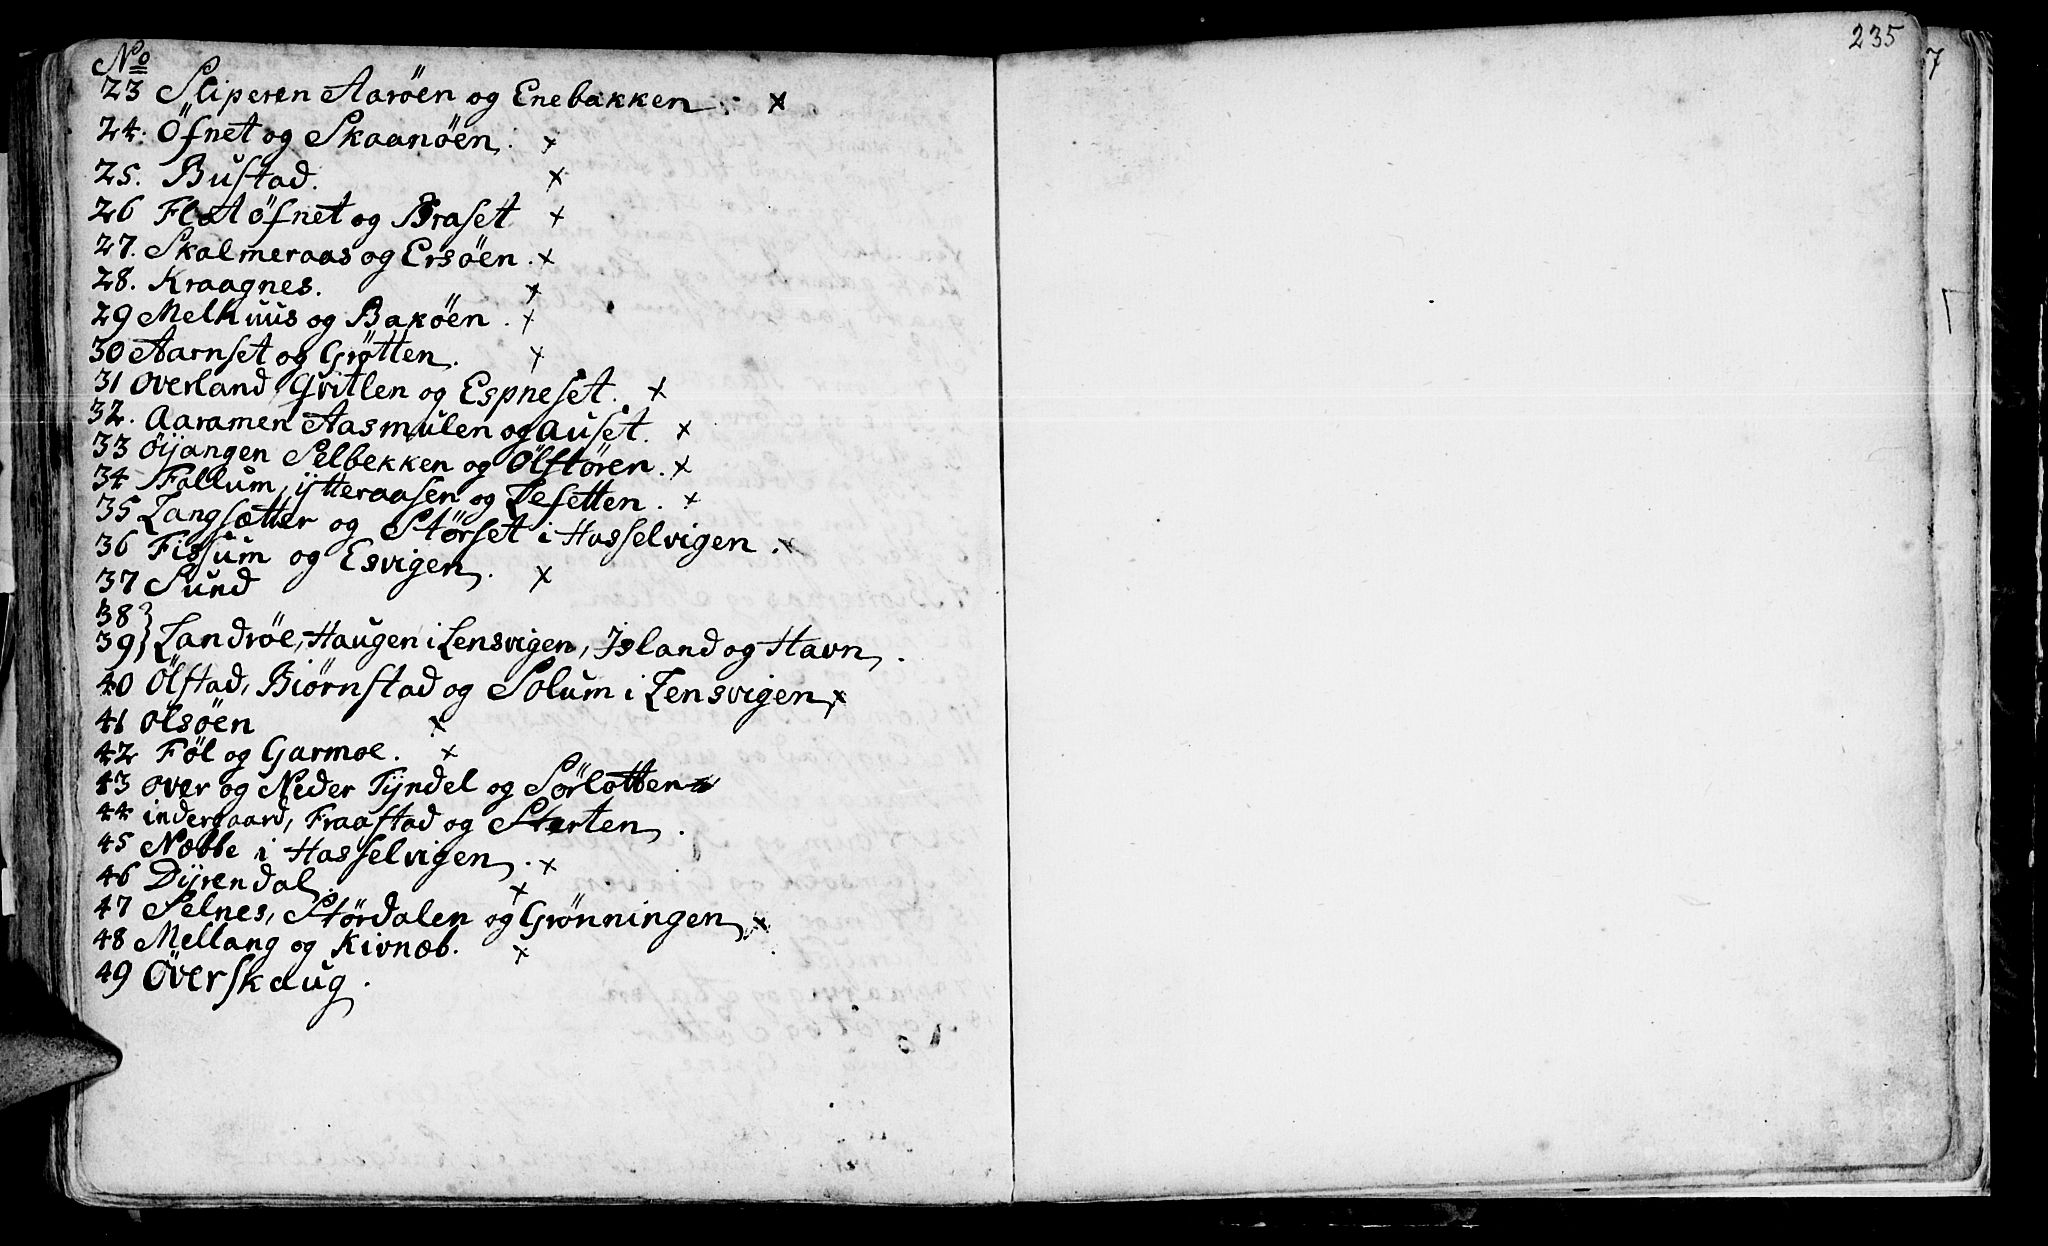 No
23 Sliperen Aaröen og Enebakken . x
24. Öfnet og Skaanöen . x
25. Bustad. x
26 Flat öfnet og Braset x
27. Skalmeraas og Ersöen . x
28. Kraagnes. x
29 Melhuus og Baköen . x
30 Aarnset og Grøtten. x
31 Overland Gvitlen og Espneset. x
32. Aaramen Aasmulen og Auset. x
33 Öijangen Selbekken og Ölstören. x
34 Fallum, ytteraasen og Lesetten . x
35 Langsætter og Störset i Hasselvigen . x
36 Fissum og Esvigen .
37 Sund x
38 }
39 } Landröe, Haugen i Lensvigen, Island og Havn .
40 Ölstad, Biörnstad og Solum i Lensvigen x
41 Olsöen x
42 Föl og Garmoe . x
43 over og Neder Tyndel og Sörlotten x
44 indergaard, Fraastad og Sterten .
45 Næbbe i Hasselvigen . x
46 Dijrendal. x
47 Selnes, Stördalen og Grönningen x
48 Mellang og Kivnæb. x
49 Överskaug .
235
7